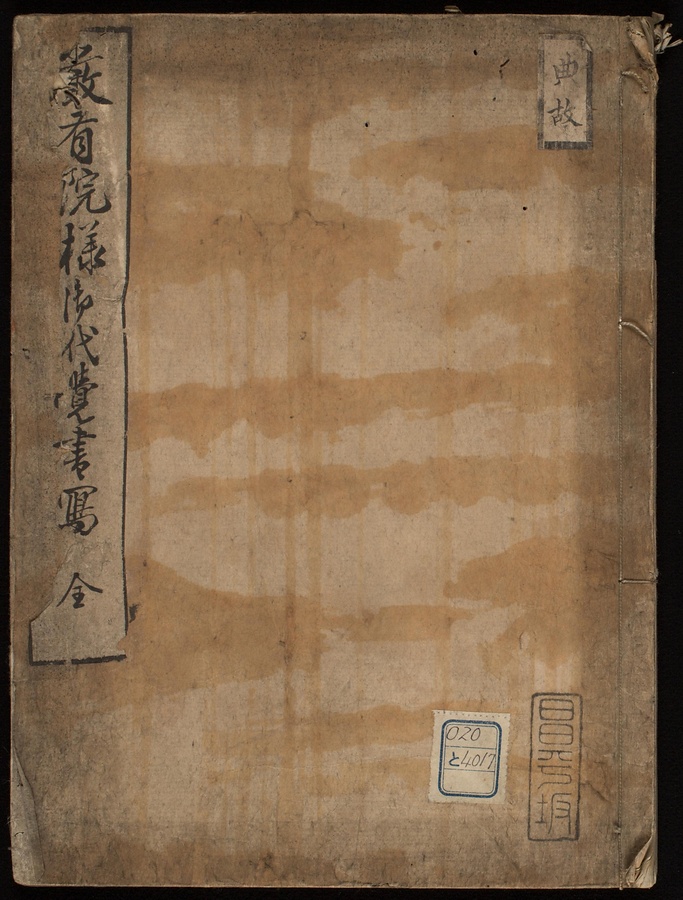 典故
嚴有院様御代覺書寫 全
020
と4017
昌平坂